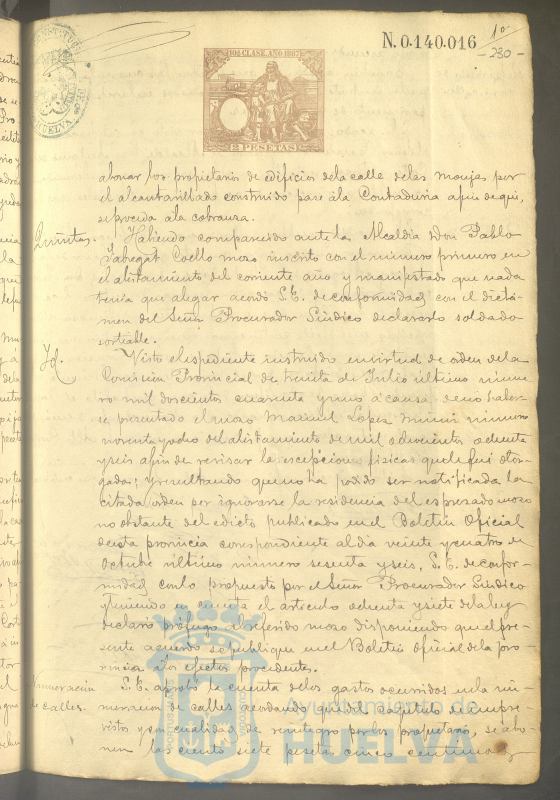 N. 0.140.016
1º
230
10ª CLASE. AÑO 1887
2 PESETAS
HUELVA
abonar los propietarios de edificios de la calle de las monjas por
el alcantarillado construido pase á la Contaduria afin de qui,
se proceda á la cobranza.
Quintas.
Habiendo comparecido ante la Alcaldia Don Pablo
Fabregat Coello mozo inscrito con el numero primero en
el alistamiento del corriente año y manifestado que nada
tenia que alegar acordó S.E. de conformidad con el dictá-
men del Señor Procurador Síndico declararlo soldado
sortiable.
Id.
Visto el espediente instruido en virtud de orden de la
Comision Provincial de treinta de Julio último núme-
ro mil doscientos cuarenta y uno á causa de no haber-
se presentado el mozo Manuel Lopez número
noventa y ocho del alistamiento de mil ochocientos ochenta
y seis afin de revisar la escepcion fisica que le fué otor-
gada; y resultando que no ha podido ser notificada la
citada orden por ignorarse la residencia del espresado mozo
no obstante del edicto publicado en el Boletin Oficial
de esta provincia correspondiente al dia veinte y cuatro de
Octubre último número sesenta y seis, S.E. de confor-
midad con lo propuesto por el Señor Procurador Síndico
y teniendo en cuenta el articulo ochenta y siete de la ley
declaró prófugo al referido mozo disponiendo que el pre-
sente acuerdo se publique en el Boletin oficial de la pro-
vincia á los efectos procedentes.
Numeracion
de calles.
S.E. aprobó la cuenta de los gastos ocurridos en la nu-
meracion de calles acordando que del capitulo de impre-
vistos y con cualidad de reintegro por los propietarios, se abo-
nen las ciento siete pesetas cinco centimos
Ayuntamiento de
HUELVA